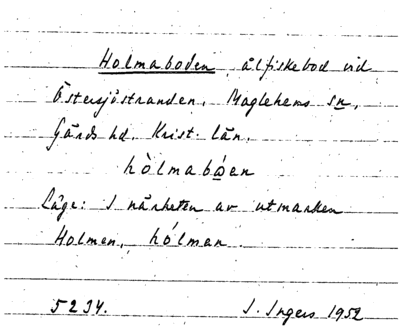 Holmaboden, ålfiskebod vid
Östersjöstranden, Maglehems sn,
Gärds hd. Krist. län.
hòlmabǿen
Läge: I närheten av utmarken
Holmen, hólman.
5234. I. Ingers 1952